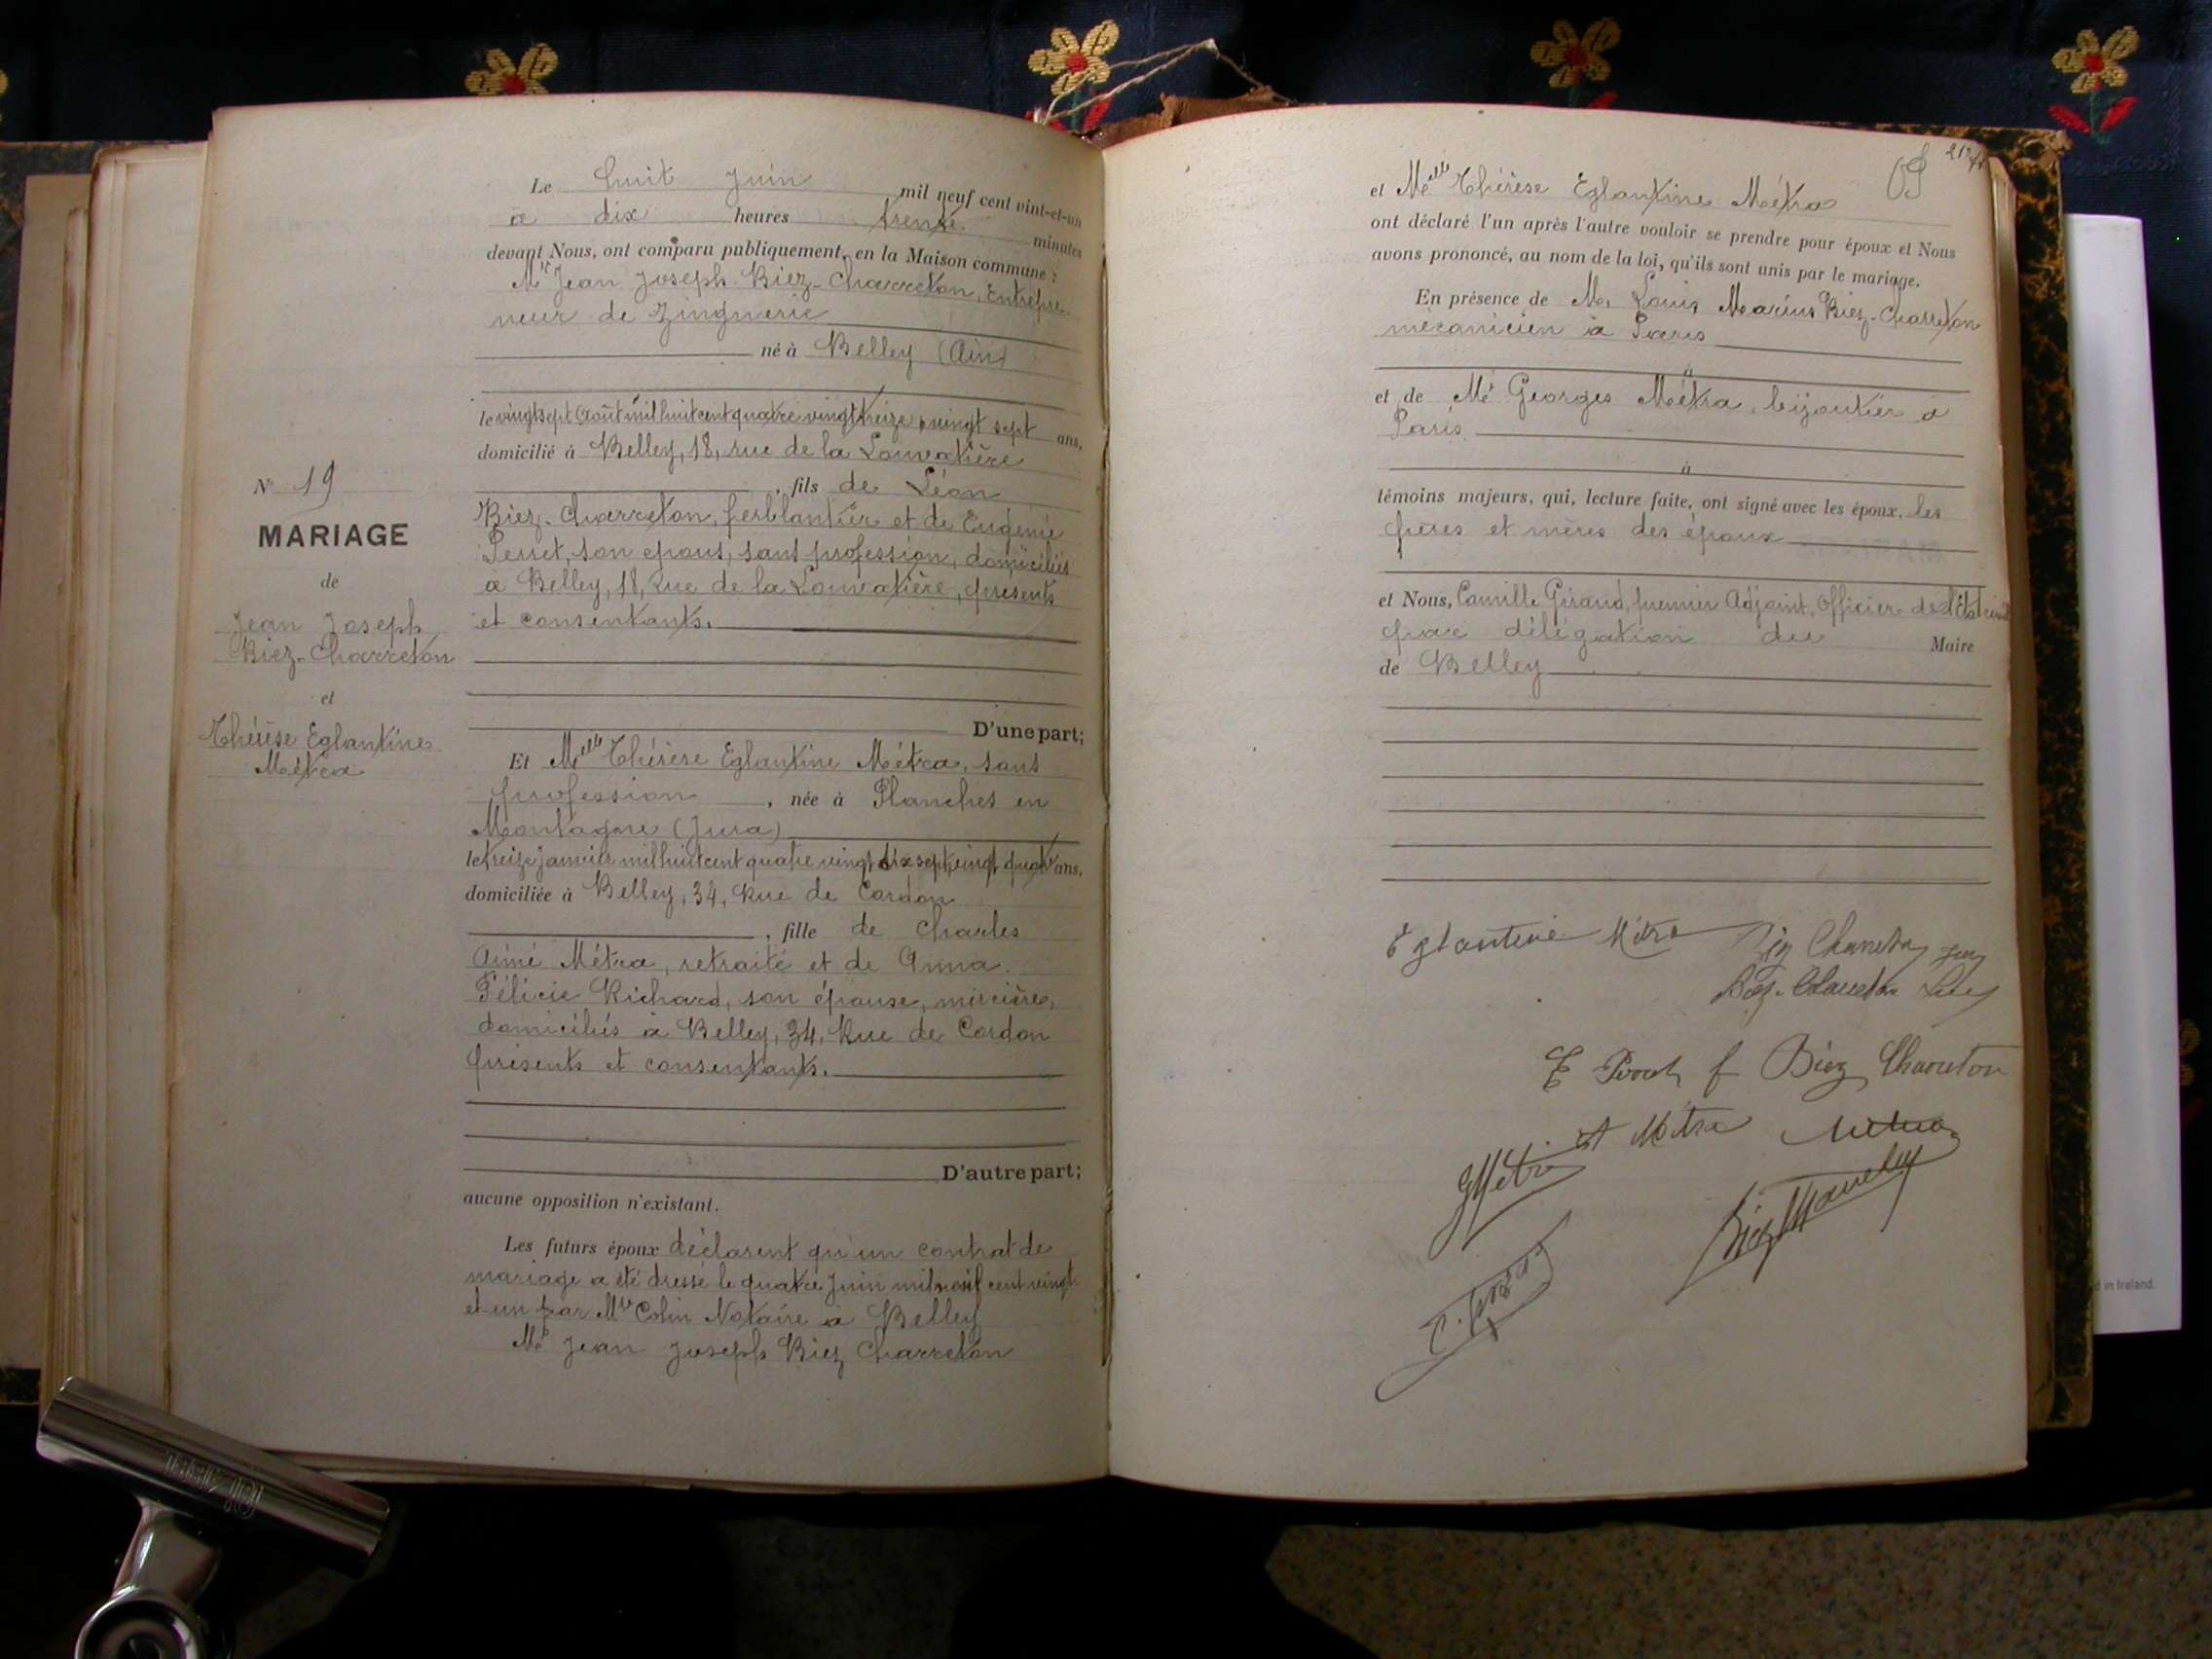 Le huit juin mil neuf cent vint-et-un
à dix heures trente minutes
devant Nous, ont comparu publiquement, en la Maison commune :
Mr Jean Joseph Biez-Charreton, Entrepre-
neur de Zinguerie
né à Belley (Ain)
le vingt sept Août mil huit cent quatre vingt treize, vingt sept ans,
domicilié à Belley, 18, rue de la Louvatière
, fils de Léon
Biez-Charreton, ferblantier et de Eugénie
Perret, son epous, sans profession, domiciliés
à Belley, 18, Rue de la Louvatière, présents
et consentants.
N° 19
MARIAGE
de
Jean Joseph
Biez-Charreton
et
Thérèse Eglantine
Métra
D'une part;
Et Melle Thérèse Eglantine Métra, sans
profession, née à Planches en
Montagne (Jura)
le treize janvier mil huit cent quatre vingt dix sept, vingt quatre ans,
domiciliée à Belley, 34, Rue de Cordon
, fille de Charles
Aimé Métra, retraité et de Anna
Félicie Richard, son épouse, mercière,
domiciliés à Belley, 34, Rue de Cordon
présents et consentants.
D'autre part;
aucune opposition n'existant.
Les futurs époux déclarent qu'un contrat de
mariage a été dressé le quatre juin mil neuf cent vingt
et un par Mtre Colin Notaire à Belley
Mr Jean Joseph Biez Charreton
21
et Melle Thérèse Eglantine Métra
ont déclaré l'un après l'autre vouloir se prendre pour époux et Nous
avons prononcé, au nom de la loi, qu'ils sont unis par le mariage.
En présence de Mr Louis Marius Biez-Charreton
mécanicien à Paris
à
et de Mr Georges Métra, bijoutier à
Paris
à
témoins majeurs, qui, lecture faite, ont signé avec les époux, les
pères et mères des époux
et Nous, Camille Giraud, premier Adjoint, Officier de l'Etat civil
par délégation du Maire
de Belley
Eglantine Métra Biez Charreton
Biez-Charreton
E Perret f Biez Charreton
A Métra Métra
GMétra Biez Charreton
d in Ireland.